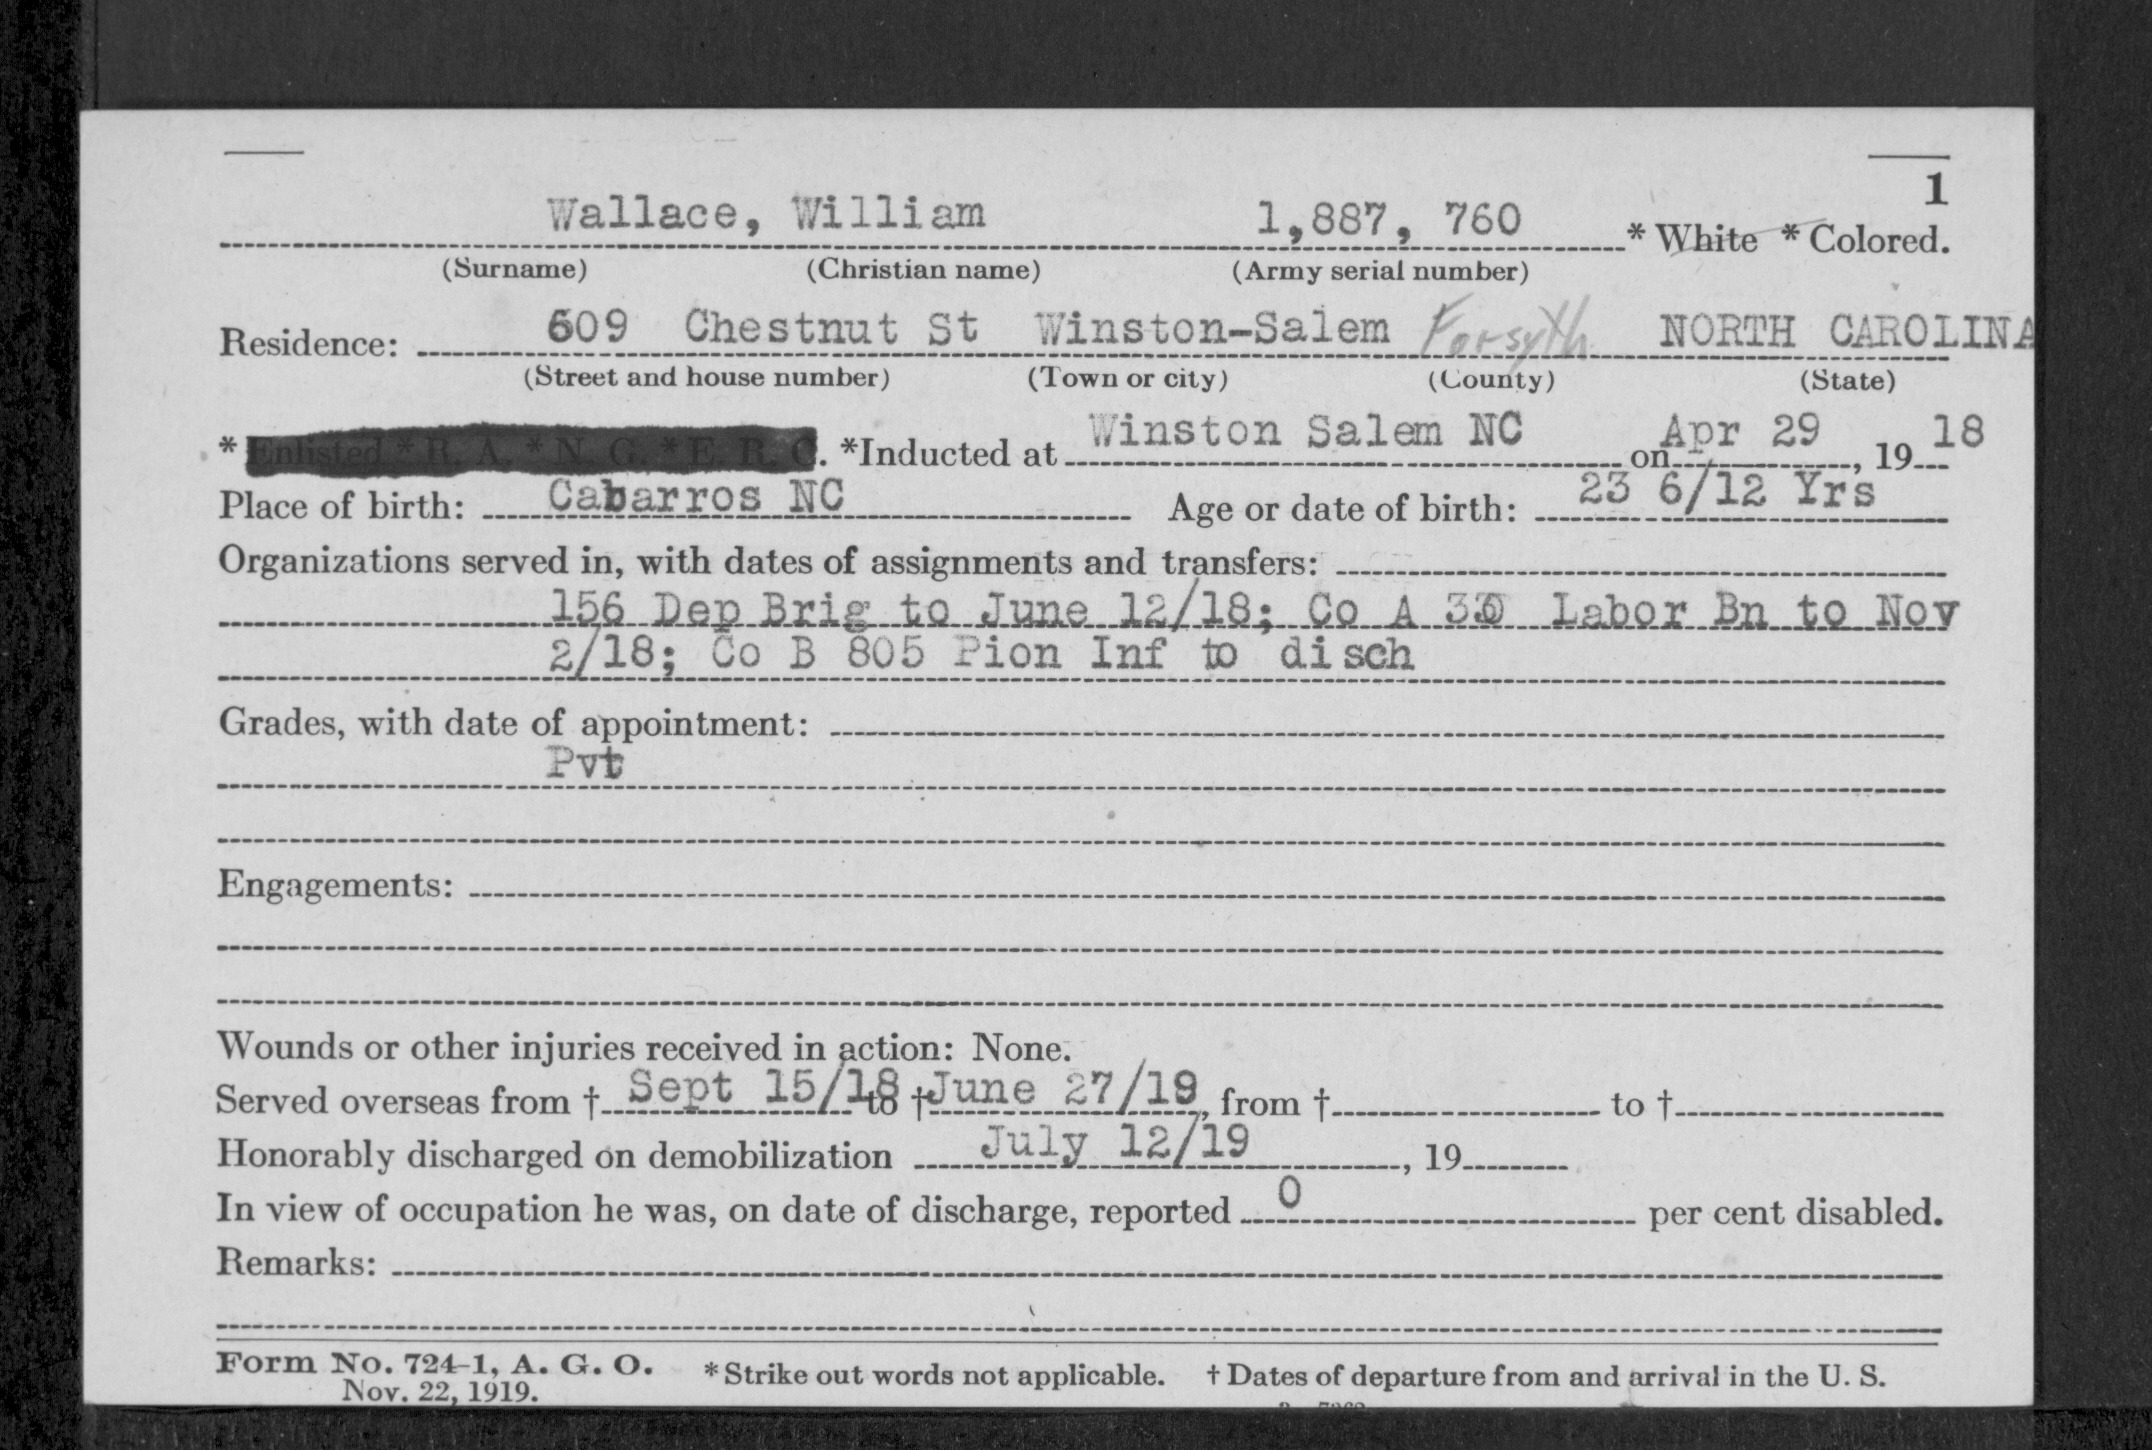 1
Wallace, William 1,887, 760 * White * Colored.
(Surname) (Christian name) (Army serial number)
Residence: 609 Chestnut St Winston-Salem Forsyth NORTH CAROLINA
(Street and house number) (Town or city) (County) (State)
* Enlisted * R. A. * N. G. * E. R. C. *Inducted at Winston Salem NC on Apr 29, 19 18
Place of birth: Cabarros NC Age or date of birth: 23 6/12 Yrs
Organizations served in, with dates of assignments and transfers:
156 Dep Brig to June 12/18; Co A 330 Labor Bn to Nov
2/18; Co B 805 Pion Inf to disch
Grades, with date of appointment:
Pvt
Engagements:
Wounds or other injuries received in action: None.
Served overseas from † Sept 15/18 to † June 27/19, from † to †
Honorably discharged on demobilization July 12/19, 19
In view of occupation he was, on date of discharge, reported 0 per cent disabled.
Remarks:
Form No. 724-1, A. G. O. * Strike out words not applicable. † Dates of departure from and arrival in the U. S.
Nov. 22, 1919.